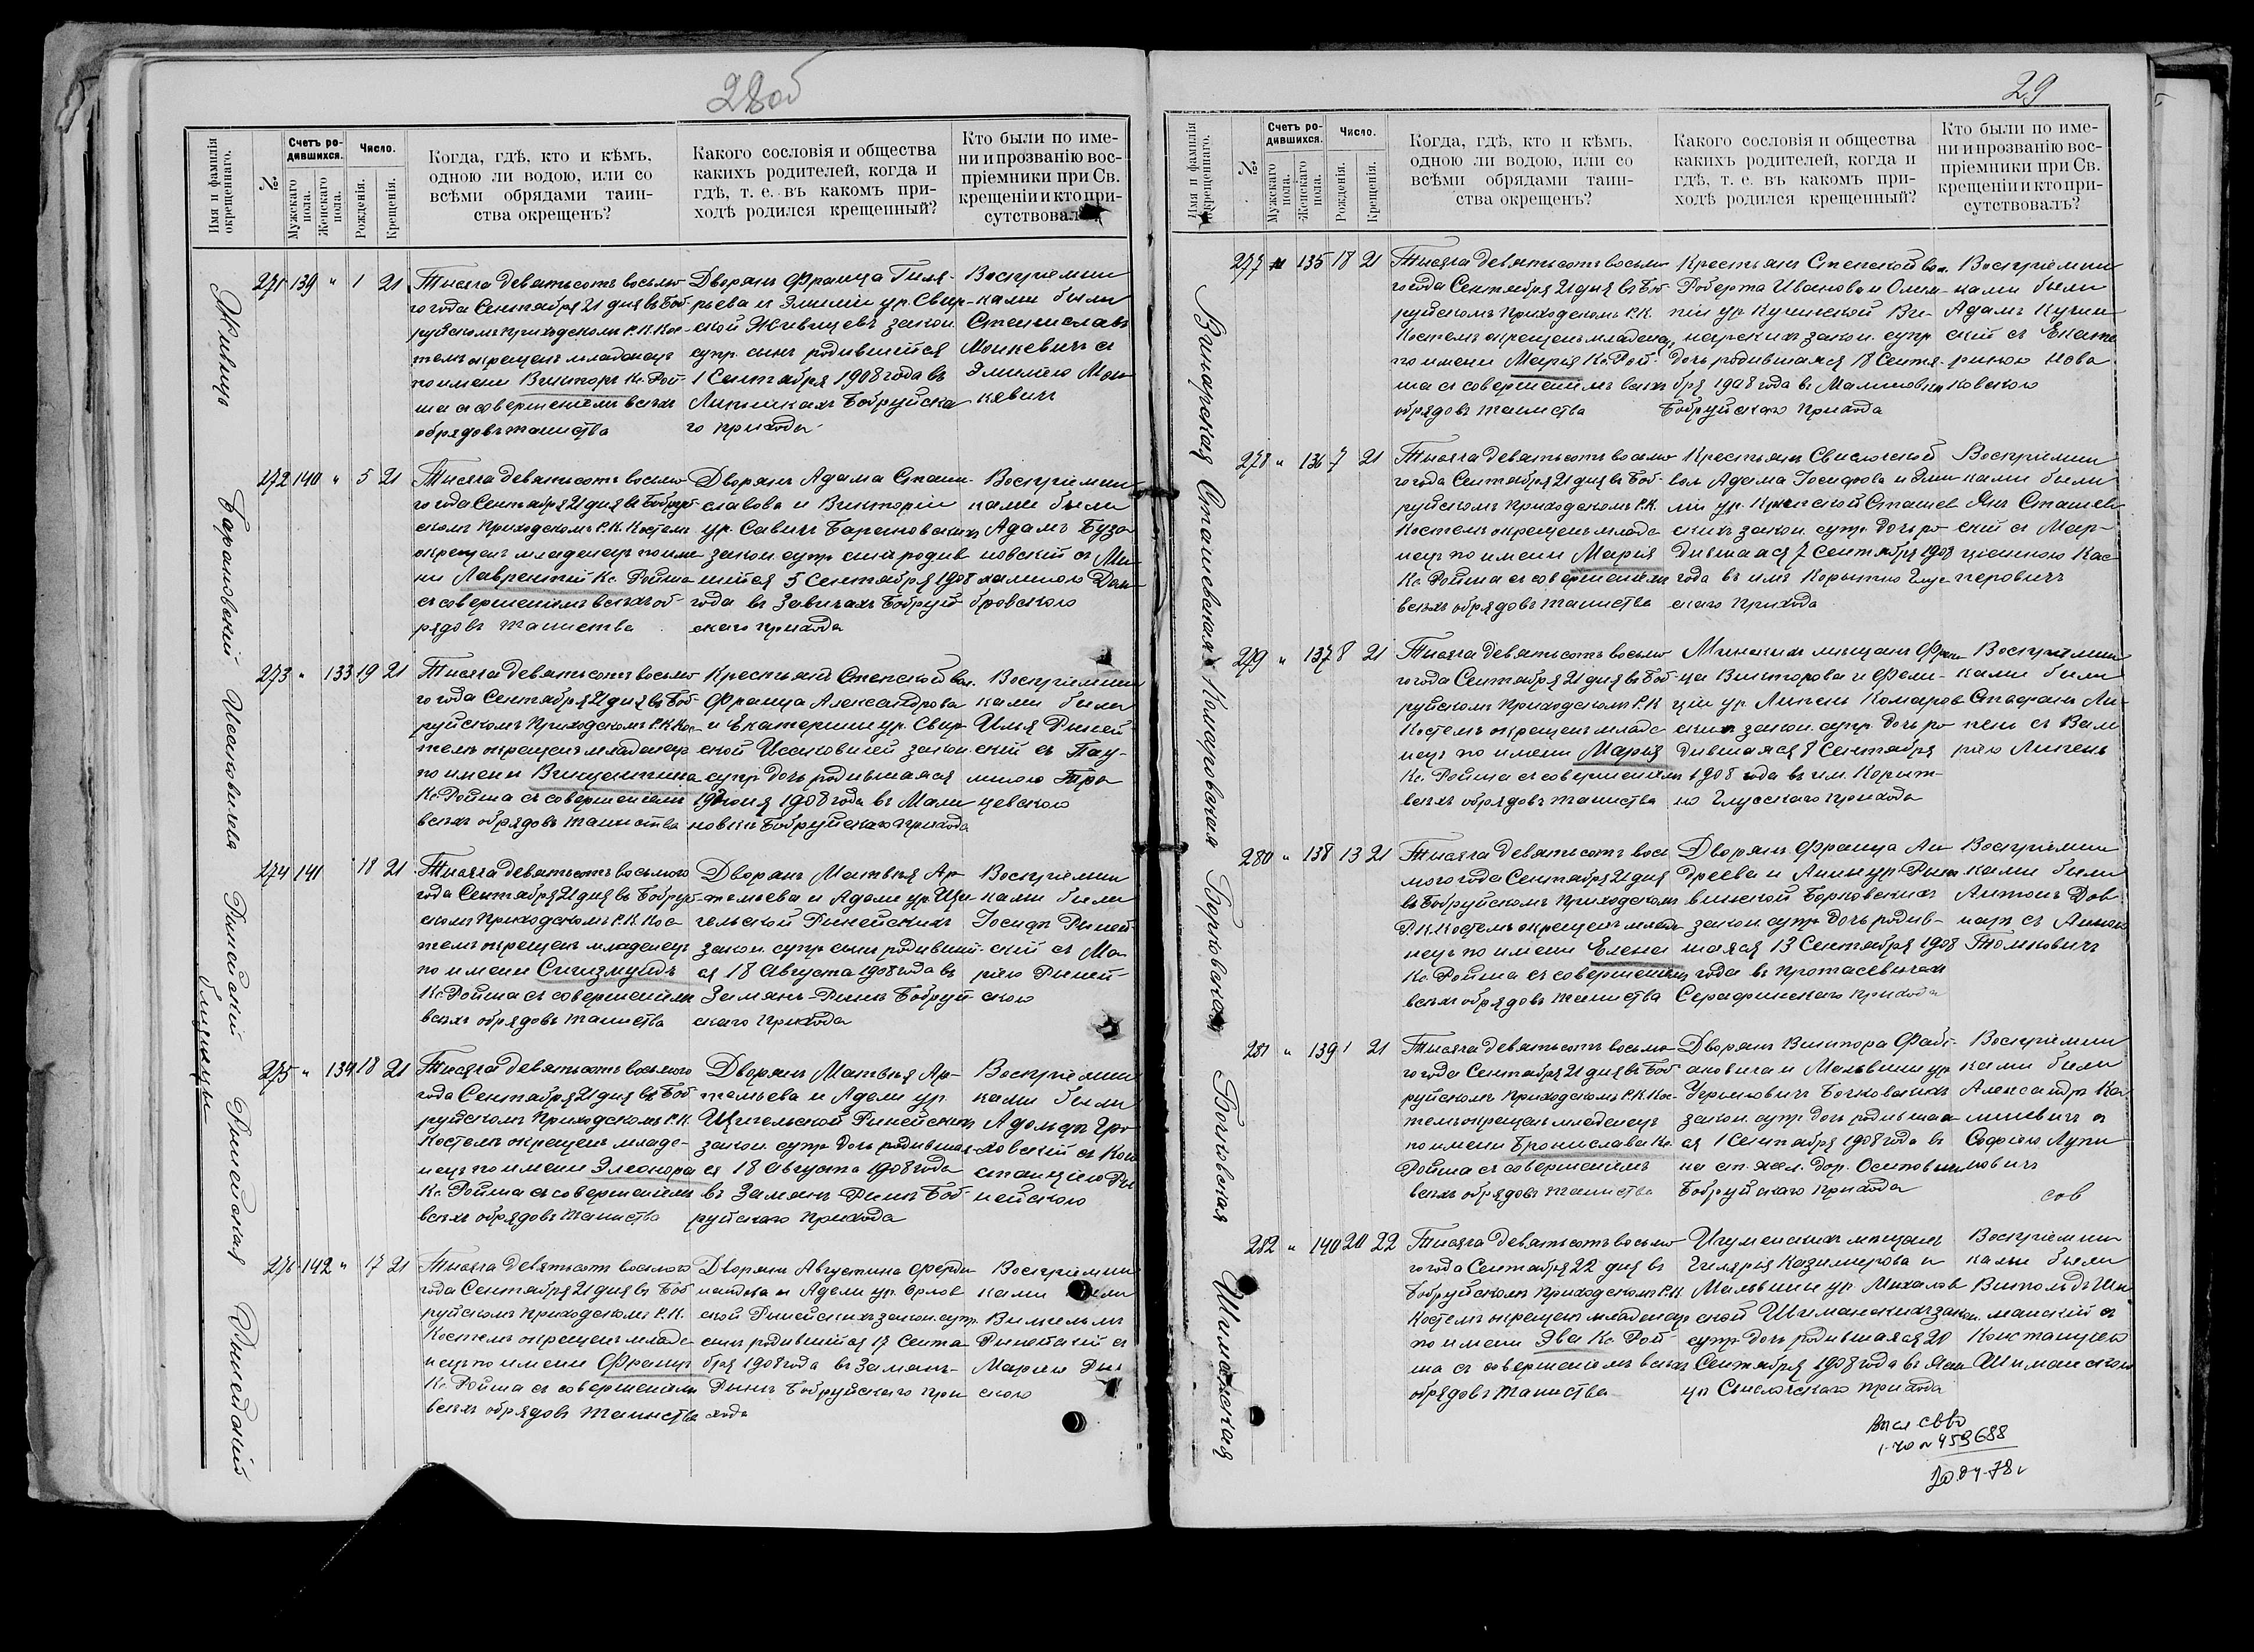 28об
Имя и фамилія окрещеннаго.
№
Счетъ родившихся.
Мужскаго пола.
Женскаго пола.
Число.
Рожденія.
Крещенія.
Когда, гдѣ, кто и кѣмъ,
одною ли водою, или со
всѣми обрядами таин-
ства окрещенъ?
Какого сословія и общества
какихъ родителей, когда и
гдѣ, т. е. въ какомъ при-
ходѣ родился крещенный?
Кто были по име-
ни и прозванію вос-
пріемники при Св.
крещеніи и кто при-
сутствовалъ?
Живицъ
271 139 " 1 21
Тысяча девятьсотъ восьмо-
го года Сентября 21 дня въ Боб-
руйскомъ Приходскомъ Р.К. Кос-
телѣ окрещенъ младенецъ
по имени Викторъ Кс. Рой-
ша съ совершеніемъ всѣхъ
обрядовъ таинства
Дворянъ Франца Гиля-
рьева и Эмиліи ур. Свир-
ской Живицевъ закон.
супр. сынъ родившійся
1 Сентября 1908 года въ
Липникахъ Бобруйска
го прихода
Воспріемни
ками были
Станиславъ
Монкевичъ съ
Эмиліею Мон
кевичъ
Барановскій
272 140 " 5 21
Тысяча девятьсотъ восьмо
го года Сентября 21 дня въ Бобруй
скомъ Приходскомъ Р.К. Костелѣ
окрещенъ младенецъ по име
ни Лаврентій Кс. Ройша
съ совершеніемъ всѣхъ об-
рядовъ таинства
Дворянъ Адама Стани
славова и Викторіи
ур. Савичъ Барановскихъ
закон. супр. сынъ родив
шійся 5 Сентября 1908
года въ Завичахъ Бобруй
скаго прихода
Воспріемни
ками были
Адамъ Буза
новскій съ Ми
халиною Дом
бровскою
Исаковичева
273 " 133 19 21
Тысяча девятьсотъ восьмо
го года Сентября 21 дня въ Боб
руйскомъ Приходскомъ Р.К. Кос
телѣ окрещенъ младенецъ
по имени Викцентина
Кс. Ройша съ совершеніемъ
всѣхъ обрядовъ таинства
Крестьянъ Степской вол.
Франца Александрова
и Екатерины ур. Свир
ской Исаковичей закон.
супр. дочь родившаяся
19 Іюня 1908 года въ Мали
новкѣ Бобруйскаго прихода
Воспріемни
ками были
Илья Рыней
скій съ Пау-
линою Тра
цевскою
Рынейскій
274 141 18 21
Тысяча девятьсотъ восьмого
года Сентября 21 дня въ Бобруй
скомъ Приходскомъ Р.К. Кос
телѣ окрещенъ младенецъ
по имени Сигизмундъ
Кс. Ройша съ совершеніемъ
всѣхъ обрядовъ таинства
Дворянъ Матвѣя Ар
темьева и Адели ур. Щи
гельской Рынейскихъ
закон. супр. сынъ родивший
ся 18 Августа 1908 года въ
Замянъ-Рынѣ Бобруй
скаго прихода
Воспріемни
ками были
Іосифъ Рыней
скій съ Ма
ріею Рыней-
скою
близнецы
Рынейская
275 " 134 18 21
Тысяча девятьсотъ восьмого
года Сентября 21 дня въ Боб
руйскомъ Приходскомъ Р.К.
Костелѣ окрещенъ младе-
нецъ по имени Элеонора
Кс. Ройша съ совершеніемъ
всѣхъ обрядовъ таинства
Дворянъ Матвѣя Ар-
темьева и Адели ур.
Щигельской Рынейскихъ
закон. супр. дочь родивша-
ся 18 Августа 1908 года
въ Замянъ Рынѣ Боб-
руйскаго прихода
Воспріемни
ками были
Адольфъ Гро-
ховскій съ Кон
станціею Ры
нейскою
Рынейскій
276 142 " 17 21
Тысяча девятьсотъ восьмого
года Сентября 21 дня въ Боб
руйскомъ Приходскомъ Р.К.
Костелѣ окрещенъ младе
нецъ по имени Францъ
Кс. Ройша съ совершеніемъ
всѣхъ обрядовъ таинства
Дворянъ Августина Ферди
нандова и Адели ур. Орлов
ской Рынейскихъ закон. супр.
сынъ родившійся 17 Сентя
бря 1908 года въ Замянъ-
Рынѣ Бобруйскаго при
хода
Воспріемни
ками были
Вильгельмъ
Рынейскій съ
Маріею Рын
скою
29
Имя и фамилія окрещеннаго.
№
Счетъ родившихся.
Мужскаго пола.
Женскаго пола.
Число.
Рожденія.
Крещенія.
Когда, гдѣ, кто и кѣмъ,
одною ли водою, или со
всѣми обрядами таин-
ства окрещенъ?
Какого сословія и общества
какихъ родителей, когда и
гдѣ, т. е. въ какомъ при-
ходѣ родился крещенный?
Кто были по име-
ни и прозванію вос-
пріемники при Св.
крещеніи и кто при-
сутствовалъ?
Винарская
277 135 18 21
Тысяча девятьсотъ восьмо
го года Сентября 21 дня въ Боб-
руйскомъ Приходскомъ Р.К.
Костелѣ окрещенъ младенец
по имени Марія Кс. Рой-
ша съ совершеніемъ всѣхъ
обрядовъ таинства
Крестьянъ Степской вол.
Роберта Иванова и Олим-
піи ур. Кучинской Ви-
нарскихъ закон. супр
дочь родившаяся 18 Сентя
бря 1908 года въ Малиновкѣ
Бобруйскаго прихода
Воспріемни
ками были
Адамъ Кучин
скій съ Екате
риною Нова
ковскою
Сташевская
278 " 136 7 21
Тысяча девятьсотъ восьмо
го года Сентября 21 дня въ Боб-
руйскомъ Приходскомъ Р.К.
Костелѣ окрещенъ младе
нецъ по имени Марія
Кс. Ройша съ совершеніемъ
всѣхъ обрядовъ таинства
Крестьянъ Свислочской
вол. Адама Іосифова и Эми
ліи ур. Сташев
скихъ закон. супр. дочь ро
дившаяся 7 Сентября 1908
года въ имѣ Корытно Глус
скаго прихода
Воспріемни
ками были
Янъ Сташев
скій съ Мар-
ціанною Кас
перовичъ
Комаровская
279 " 137 8 21
Тысяча девятьсотъ восьмо
го года Сентября 21 дня въ Боб
руйскомъ Приходскомъ Р.К
Костелѣ окрещенъ младе
нецъ по имени Марія
Кс. Ройша съ совершеніемъ
всѣхъ обрядовъ таинства
Минскихъ мѣщанъ Фран
ца Викторова и Фели-
ціи ур. Липень Комаров
скихъ закон. супр. дочь ро
дившаяся 8 Сентября
1908 года въ им. Корыт-
но Глусскаго прихода
Воспріемни
ками были
Стефанъ Ли-
пень съ Вале
ріею Липень
Борковская
280 " 138 13 21
Тысяча девятьсотъ вось
мого года Сентября 21 дня
въ Бобруйскомъ Приходскомъ
Р.К. Костелѣ окрещенъ младе
нецъ по имени Елена
Кс. Ройша съ совершеніемъ
всѣхъ обрядовъ таинства
Дворянъ Франца Ан
дреева и Анны ур. Рын
винской Борковскихъ
закон. супр. дочь родив-
шаяся 13 Сентября 1908
года въ Протасевичахъ
Серафинскаго прихода
Воспріемни
ками были
Антонъ Дов
наръ съ Анною
Томковичъ
Бочковская
281 " 139 1 21
Тысяча девятьсотъ восьмо-
го года Сентября 21 дня въ Боб
руйскомъ Приходскомъ Р.К. Кос-
телѣ окрещенъ младенецъ
по имени Бронислава Кс.
Ройша съ совершеніемъ
всѣхъ обрядовъ таинства
Дворянъ Виктора Фабі-
ановича и Мальвины ур
Бочковскихъ
закон. супр. дочь родившая
ся 1 Сентября 1908 года въ
на ст. жел. дор. Осиповичи
Бобруйскаго прихода
Воспріемни
ками были
Александръ Ка
миневичъ съ
Софіею Лупи
новичъ
сов
Шиманская
282 " 140 20 22
Тысяча девятьсотъ восьмо
го года Сентября 22 дня въ
Бобруйскомъ Приходскомъ Р.К.
Костелѣ окрещенъ младенецъ
по имени Эва Кс. Рой-
ша съ совершеніемъ всѣхъ
обрядовъ таинства
Игуменскихъ мѣщанъ
Гилярія Казимирова и
Мальвины ур. Михалов
ской Шиманскихъ закон.
супр. дочь родившаяся 20
Сентября 1908 года въ
Свислочскаго прихода
Воспріемни
ками были
Витольдъ Ши
манскій съ
Констанціею
Шиманскою
459688